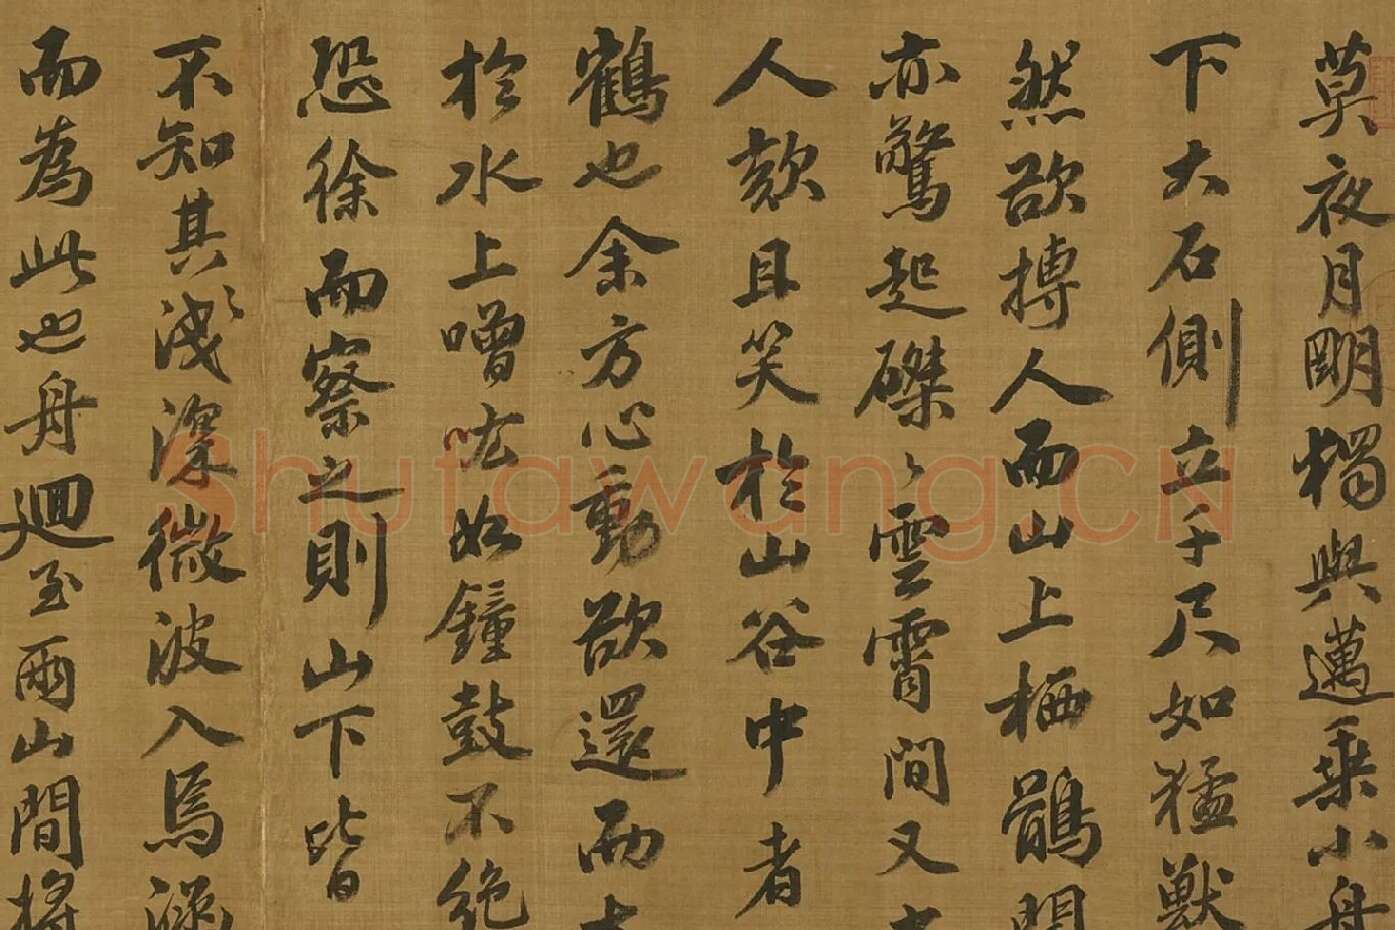 莫夜月明獨與邁乘小舟
下大石側立千尺如猛獸
然欲搏人而山上栖鶻聞
亦驚起磔々雲霄間又
人欬且笑於山谷中者
鶴也余方心動欲還而大
於水上噌吰如鐘鼓不絶
恐徐而察之則山下皆
不知其淺深微波入焉涵
而為此也舟迴至兩山間將
Shufawang.CN